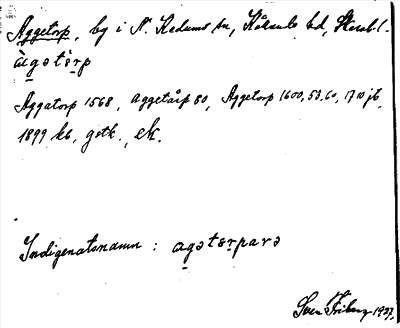 Aggetorp, by i N. Kedums sn, Kållands hd, Skarab. l.
àgətòrp
Aggatorp 1568, Aggetårp 80, Aggetorp 1600, 53, 60, 1710 jb,
1899 kb, geok., ek.
Indigenatsnamn : agətɵrparə
Sven Friberg 1937.